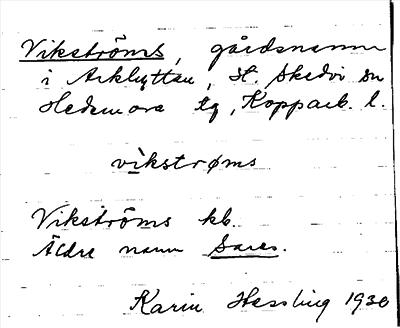 Vikströms, gårdsnamn
i Arkhyttan, St. Skedvi sn
Hedemora tg, Kopparb. l.
vikstrøms
Vikströms kb.
Äldre namn Sares.
Karin Hessling 1930